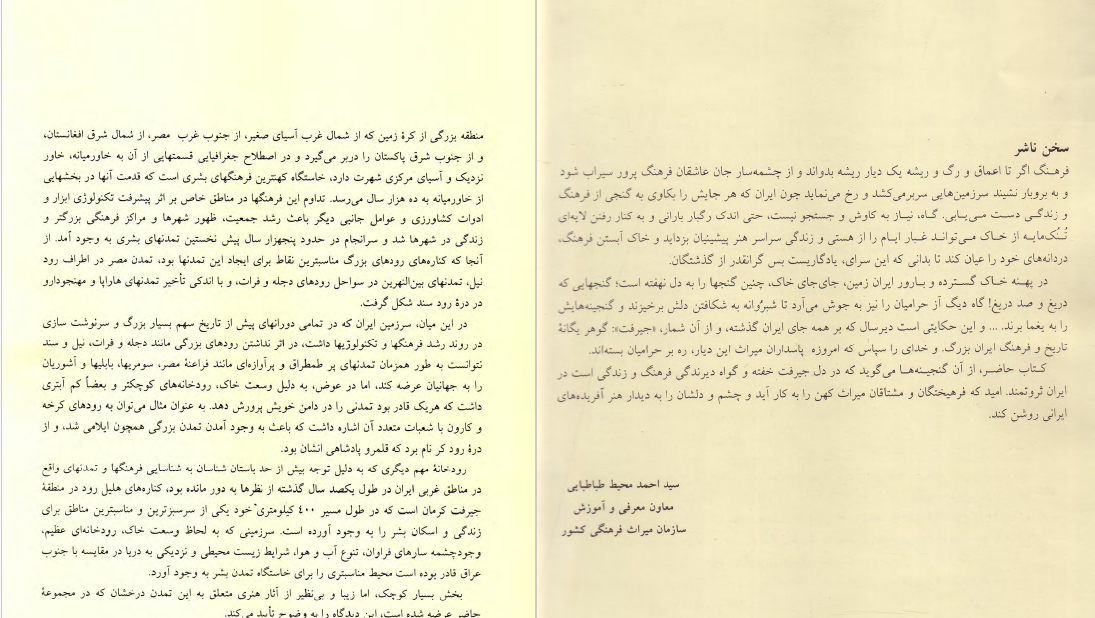 سخن ناشر
فرهنگ اگر تا اعماق و رگ و ریشه یک دیار ریشه بدواند و از چشمه‌سار جان عاشقان فرهنگ پرور سیراب شود
و به بروبار نشیند سرزمین‌هایی سربرمی‌کشد و رخ می‌نماید چون ایران که هر جایش را بکاوی به گنجی از فرهنگ
و زندگی دست می‌یابی. گاه، نیاز به کاوش و جستجو نیست، حتی اندک رگبار بارانی و به کنار رفتن لایه‌ای
تُنُک‌مایه از خاک می‌تواند غبار ایام را از هستی و زندگی سراسر هنر پیشینیان بزداید و خاک آبستن فرهنگ،
دردانه‌های خود را عیان کند تا بدانی که این سرای، یادگاریست بس گرانقدر از گذشتگان.
در پهنه خاک گسترده و بارور ایران زمین، جای‌جای خاک، چنین گنجها را به دل نهفته است؛ گنجهایی که
دریغ و صد دریغ! گاه دیگ آز حرامیان را نیز به جوش می‌آرد تا شبرُوانه به شکافتن دلش برخیزند و گنجینه‌هایش
را به یغما برند. ... و این حکایتی است دیرسال که بر همه جای ایران گذشته، و از آن شمار، «جیرفت»: گوهر یگانهٔ
تاریخ و فرهنگ ایران بزرگ. و خدای را سپاس که امروزه پاسداران میراث این دیار، ره بر حرامیان بسته‌اند.
کتاب حاضر، از آن گنجینه‌ها می‌گوید که در دل جیرفت خفته و گواه دیرندگی فرهنگ و زندگی است در
ایران ثروتمند. امید که فرهیختگان و مشتاقان میراث کهن را به کار آید و چشم و دلشان را به دیدار هنر آفریده‌های
ایرانی روشن کند.
سید احمد محیط طباطبایی
معاون معرفی و آموزش
سازمان میراث فرهنگی کشور
منطقه بزرگی از کرهٔ زمین که از شمال غرب آسیای صغیر، از جنوب غرب مصر، از شمال شرق افغانستان،
و از جنوب شرق پاکستان را دربر می‌گیرد و در اصطلاح جغرافیایی قسمتهایی از آن به خاورمیانه، خاور
نزدیک و آسیای مرکزی شهرت دارد، خاستگاه کهنترین فرهنگهای بشری است که قدمت آنها در بخشهایی
از خاورمیانه به ده هزار سال می‌رسد. تداوم این فرهنگها در مناطق خاص بر اثر پیشرفت تکنولوژی ابزار و
ادوات کشاورزی و عوامل جانبی دیگر باعث رشد جمعیت، ظهور شهرها و مراکز فرهنگی بزرگتر و
زندگی در شهرها شد و سرانجام در حدود پنجهزار سال پیش نخستین تمدنهای بشری به وجود آمد. از
آنجا که کناره‌های رودهای بزرگ مناسبترین نقاط برای ایجاد این تمدنها بود، تمدن مصر در اطراف رود
نیل، تمدنهای بین‌النهرین در سواحل رودهای دجله و فرات، و با اندکی تأخیر تمدنهای هاراپا و مهنجودارو
در درهٔ رود سند شکل گرفت.
در این میان، سرزمین ایران که در تمامی دورانهای پیش از تاریخ سهم بسیار بزرگ و سرنوشت سازی
در روند رشد فرهنگها و تکنولوژیها داشت، در اثر نداشتن رودهای بزرگی مانند دجله و فرات، نیل و سند
نتوانست به طور همزمان تمدنهای پر طمطراق و پرآوازه‌ای مانند فراعنهٔ مصر، سومریها، بابلیها و آشوریان
را به جهانیان عرضه کند، اما در عوض، به دلیل وسعت خاک، رودخانه‌های کوچکتر و بعضاً کم آبتری
داشت که هریک قادر بود تمدنی را در دامن خویش پرورش دهد. به عنوان مثال می‌توان به رودهای کرخه
و کارون با شعبات متعدد آن اشاره داشت که باعث به وجود آمدن تمدن بزرگی همچون ایلامی شد، و از
درهٔ رود کر نام برد که قلمرو پادشاهی انشان بود.
رودخانهٔ مهم دیگری که به دلیل توجه بیش از حد باستان شناسان به شناسایی فرهنگها و تمدنهای واقع
در مناطق غربی ایران در طول یکصد سال گذشته از نظرها به دور مانده بود، کناره‌های هلیل رود در منطقهٔ
جیرفت کرمان است که در طول مسیر ۴۰۰ کیلومتری خود یکی از سرسبزترین و مناسبترین مناطق برای
زندگی و اسکان بشر را به وجود آورده است. سرزمینی که به لحاظ وسعت خاک، رودخانه‌ای عظیم،
وجودچشمه سارهای فراوان، تنوع آب و هوا، شرایط زیست محیطی و نزدیکی به دریا در مقایسه با جنوب
عراق قادر بوده است محیط مناسبتری را برای خاستگاه تمدن بشر به وجود آورد.
بخش بسیار کوچک، اما زیبا و بی‌نظیر از آثار هنری متعلق به این تمدن درخشان که در مجموعهٔ
حاضر عرضه شده است، این دیدگاه را به وضوح تأیید می‌کند.